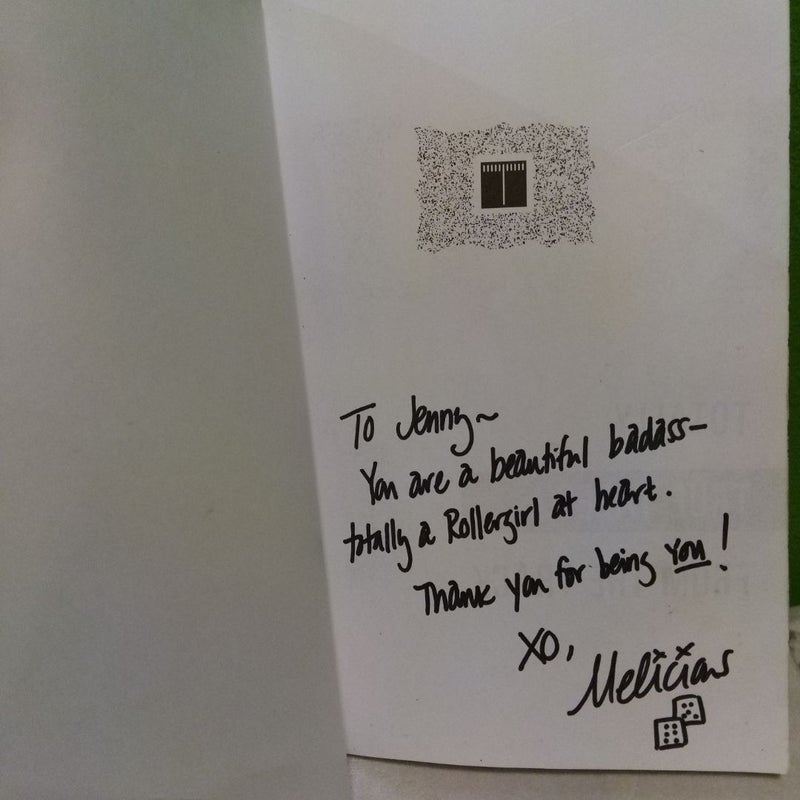 To Jenny~
You are a beautiful badass—
totally a Rollergirl at heart.
Thank you for being you!
XO,
Melicious